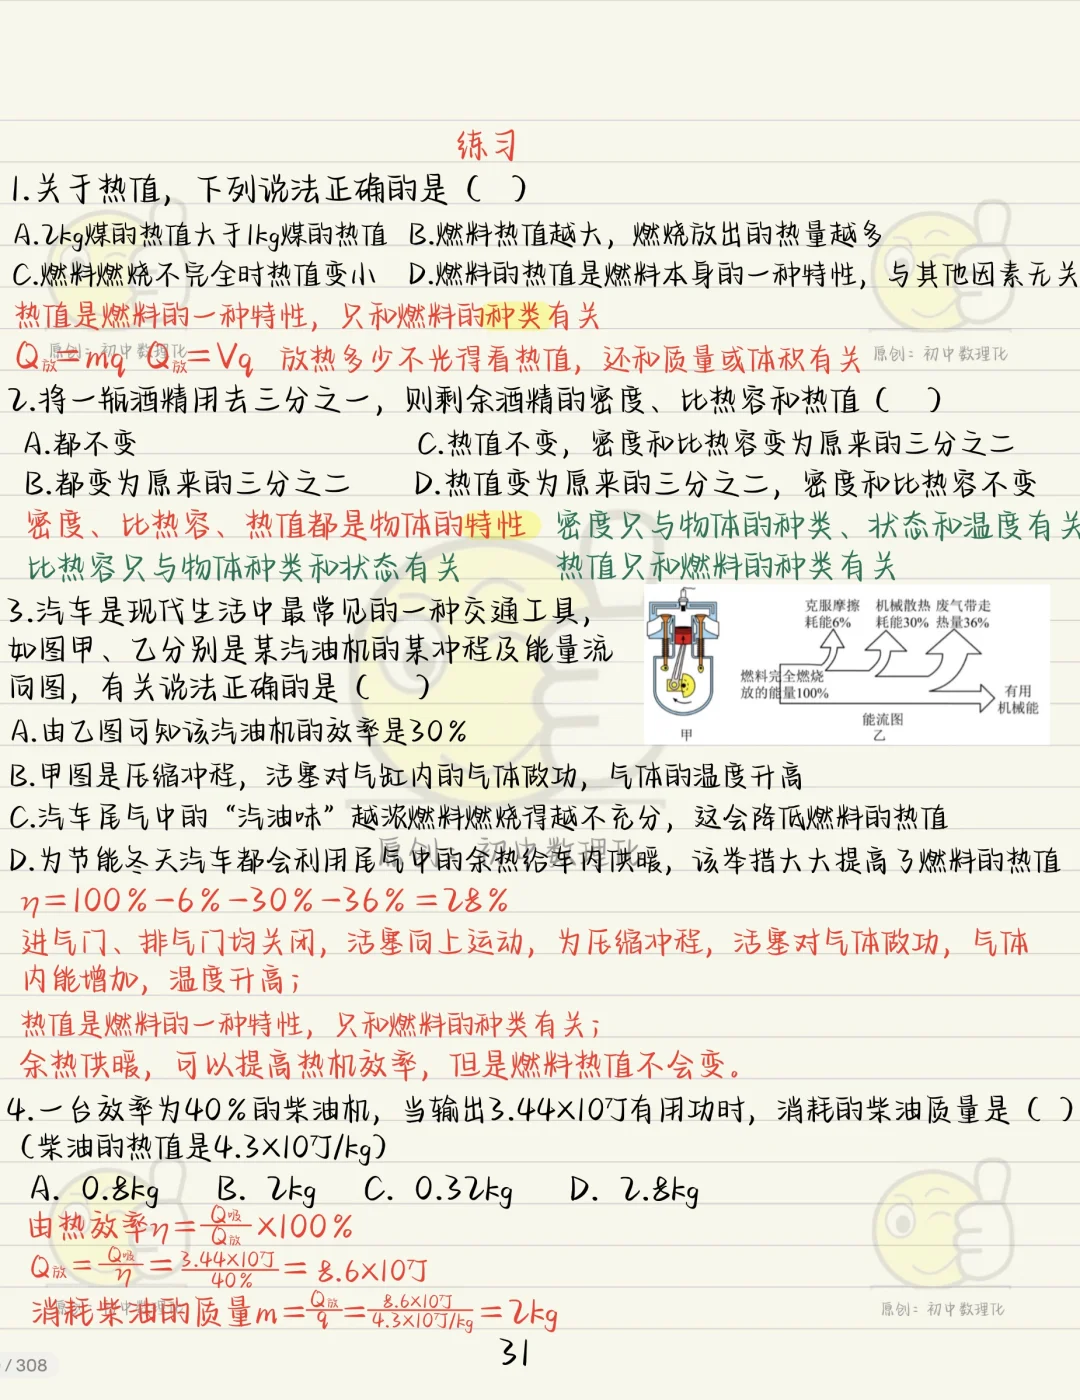 练习
1.关于热值，下列说法正确的是（ ）
A.2kg煤的热值大于1kg煤的热值 B.燃料热值越大，燃烧放出的热量越多
C.燃料燃烧不完全时热值变小 D.燃料的热值是燃料本身的一种特性，与其他因素无关
热值是燃料的一种特性，只和燃料的种类有关
Q放=mq Q放=Vq 放热多少不光得看热值，还和质量或体积有关
原创：初中数理化
原创：初中数理化
2.将一瓶酒精用去三分之一，则剩余酒精的密度、比热容和热值（ ）
A.都不变 C.热值不变，密度和比热容变为原来的三分之二
B.都变为原来的三分之二 D.热值变为原来的三分之二，密度和比热容不变
密度、比热容、热值都是物体的特性 密度只与物体的种类、状态和温度有关
比热容只与物体种类和状态有关 热值只和燃料的种类有关
3.汽车是现代生活中最常见的一种交通工具，
如图甲、乙分别是某汽油机的某冲程及能量流
向图，有关说法正确的是（ ）
克服摩擦 机械散热 废气带走
耗能6% 耗能30% 热量36%
燃料完全燃烧
放的能量100%
有用
机械能
能流图
甲 乙
A.由乙图可知该汽油机的效率是30%
B.甲图是压缩冲程，活塞对气缸内的气体做功，气体的温度升高
C.汽车尾气中的“汽油味”越浓燃料燃烧得越不充分，这会降低燃料的热值
D.为节能冬天汽车都会利用尾气中的余热给车内供暖，该举措大大提高了燃料的热值
原创：初中数理化
η=100%-6%-30%-36%=28%
进气门、排气门均关闭，活塞向上运动，为压缩冲程，活塞对气体做功，气体
内能增加，温度升高；
热值是燃料的一种特性，只和燃料的种类有关；
余热供暖，可以提高热机效率，但是燃料热值不会变。
4.一台效率为40%的柴油机，当输出3.44×10⁷J有用功时，消耗的柴油质量是（ ）
（柴油的热值是4.3×10⁷J/kg）
A. 0.8kg B. 2kg C. 0.32kg D. 2.8kg
由热效率η=Q吸/Q放×100%
Q放=Q吸/η=3.44×10⁷J/40%=8.6×10⁷J
消耗柴油的质量m=Q放/q=8.6×10⁷J/4.3×10⁷J/kg=2kg
原创：初中数理化
原创：初中数理化
31
/ 308